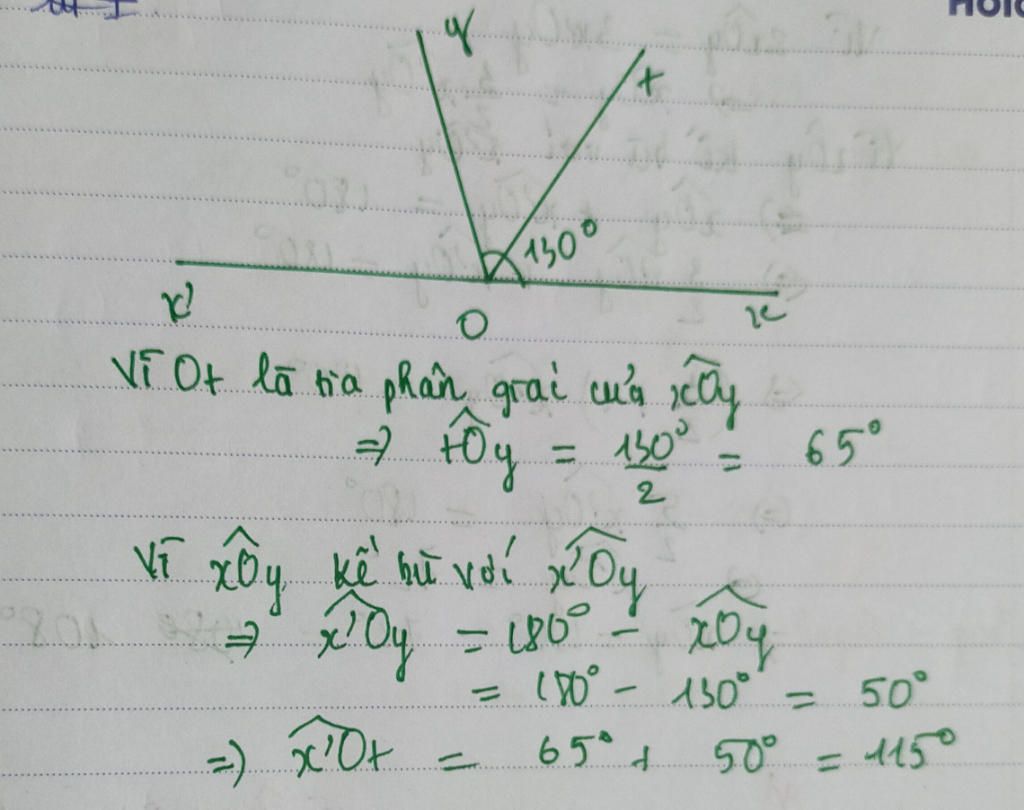 y
t
130°
x'
O
x
Vì Ot là tia phân giác của xOy
=> tOy = 130°/2 = 65°
Vì xOy kề bù với x'Oy
=> x'Oy = 180° - xOy
= 180° - 130° = 50°
=> x'Ot = 65° + 50° = 115°